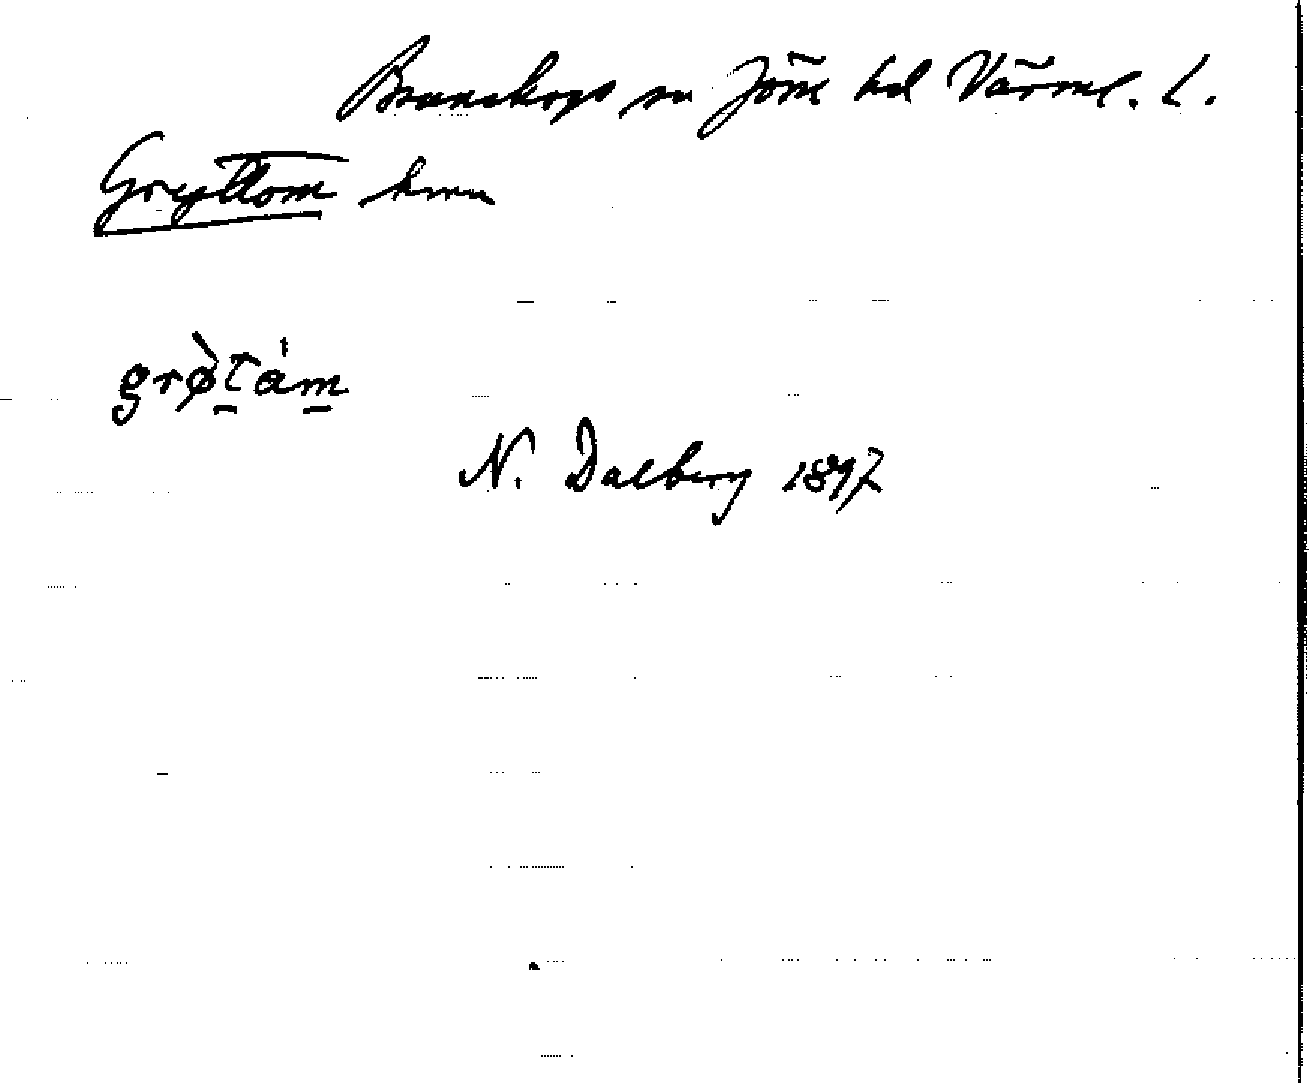 Brunskogs sn Jösse hd Värml. L.
Gryttom hmn
grø̀tám
N. Dalberg 1897